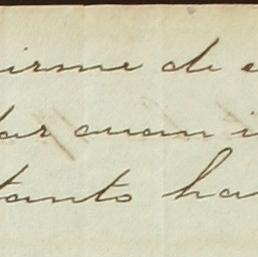 irme de
lar cuan i
tanto ha